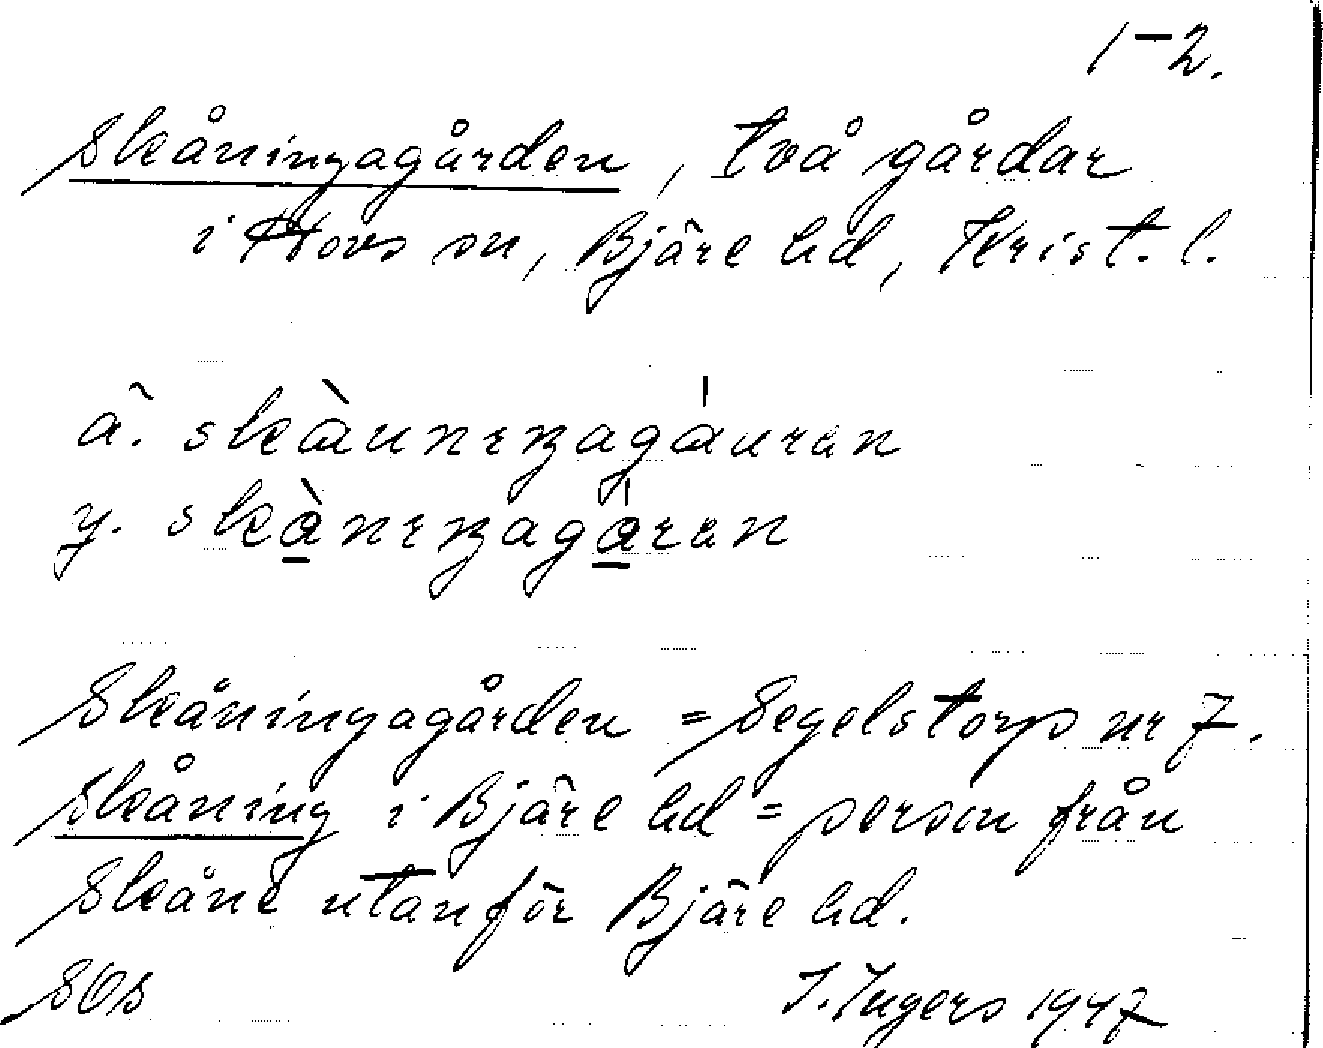 1-2.
Skåningagården, två gårdar
i Hovs sn, Bjäre hd, Krist. l.
ä. skàunıŋagáuran
y. skànıŋagáran
Skåningagården = Segelstorp nr 7.
Skåning i Bjäre hd = person från
Skåne utanför Bjäre hd.
SOS
I. Ingers 1947